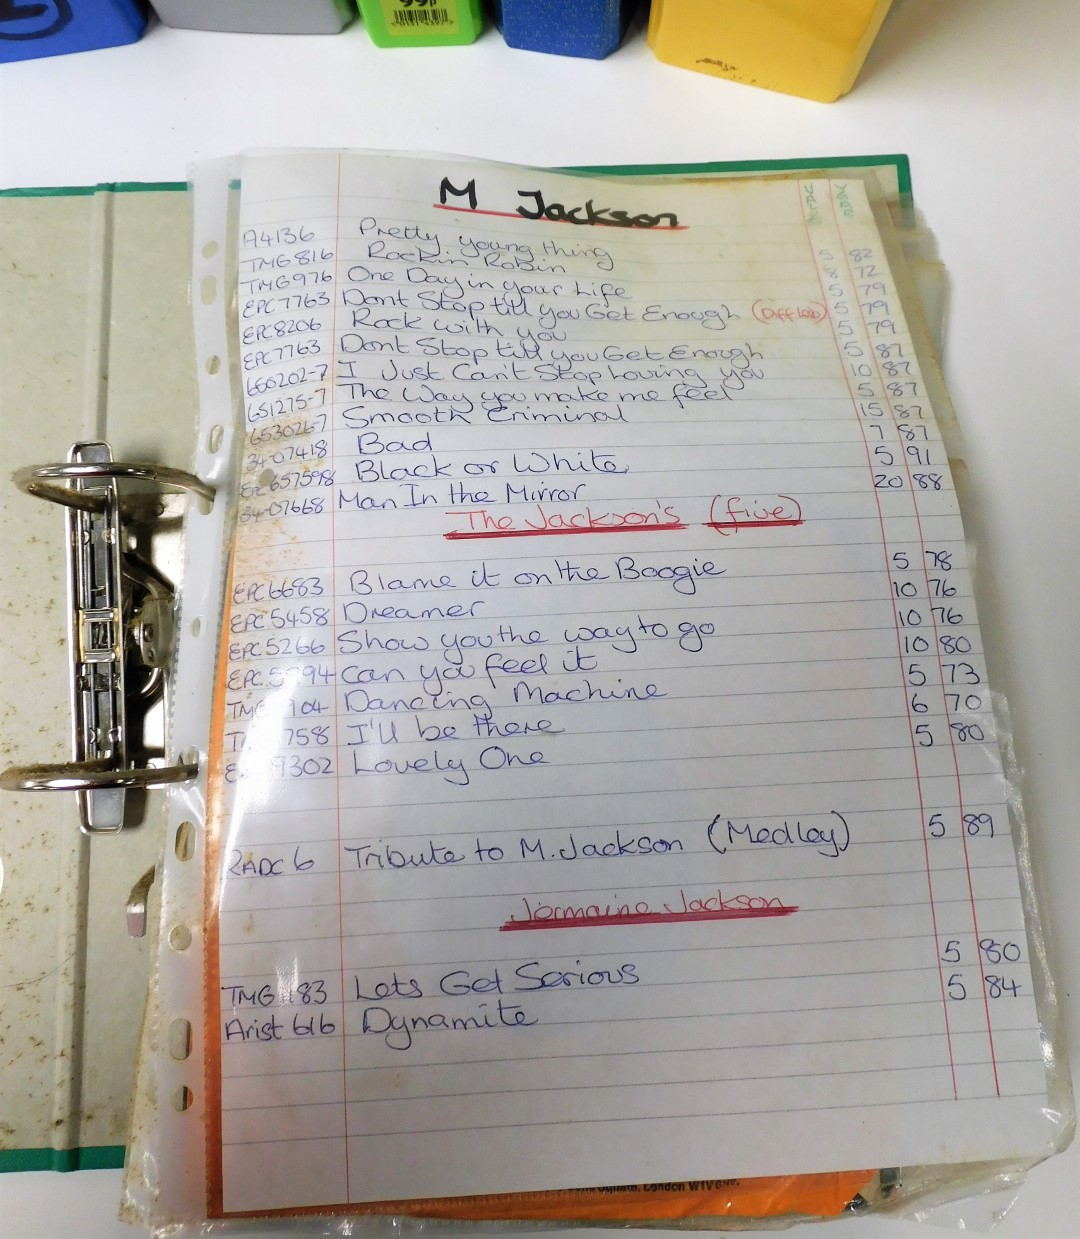 99p
M Jackson
YEAR
A4136 Pretty young thing 5 82
TMG 816 Rockin Robin 8 72
TMG 976 One Day in your Life 5 79
EPC 7763 Dont Stop till you Get Enough (Diff lab) 5 79
EPC 8206 Rock with you 5 79
EPC 7763 Dont Stop till you Get Enough 5 87
650202-7 I Just Can't Stop Loving you 10 87
651275-7 The Way you make me feel 5 87
653026-7 Smooth Criminal 15 87
34-07418 Bad 7 87
657598 Black or White 5 91
34-07668 Man In the Mirror 20 88
The Jackson's (five)
EPC 6683 Blame it on the Boogie 5 78
EPC 5458 Dreamer 10 76
EPC 5266 Show you the way to go 10 76
EPC 94 Can you feel it 10 80
TMG 904 Dancing Machine 5 73
758 I'll be there 6 70
9302 Lovely One 5 80
RADC 6 Tribute to M. Jackson (Medley) 5 89
Jermaine Jackson
TMG 1183 Lets Get Serious 5 80
Arist 616 Dynamite 5 84
London W1V